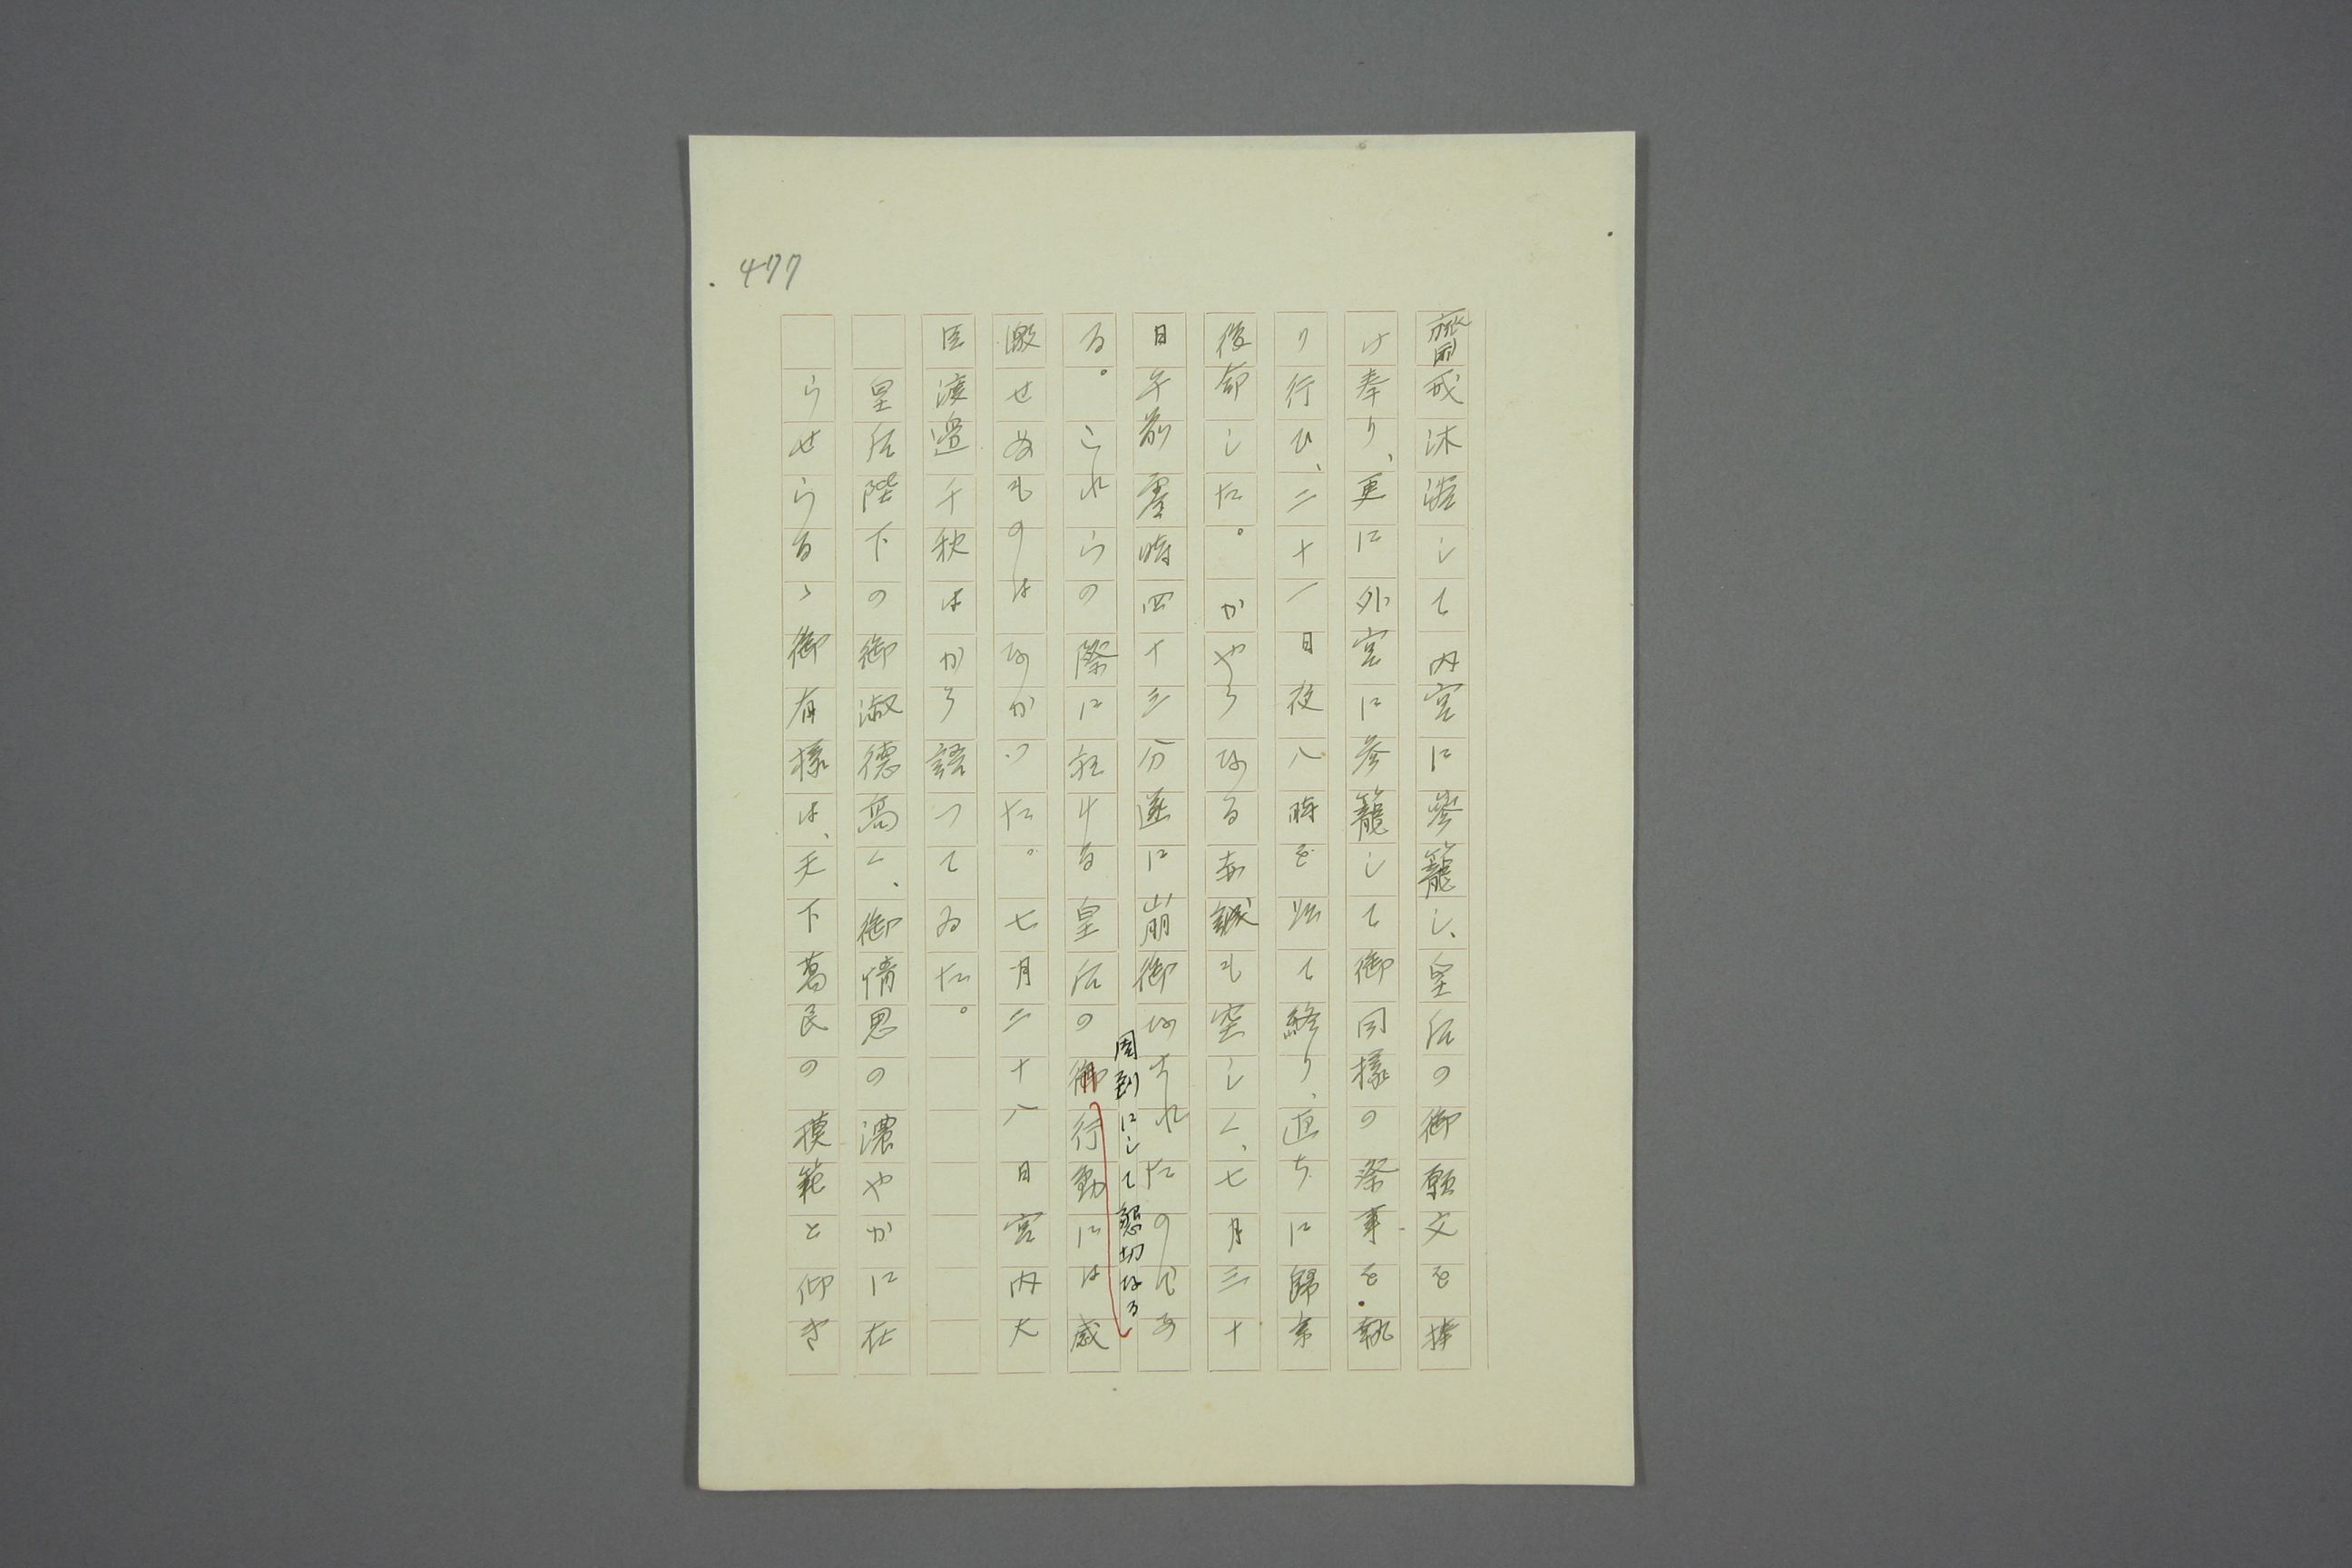 477
齋戒沐浴して内宮に參籠し、皇后の御願文を捧
げ奉り、更に外宮に参籠して御同様の祭事を執
り行ひ、二十一日夜八時を以て終り、直ちに歸京
復命した。かやうなる赤誠も空しく、七月三十
日午前零時四十三分遂に崩御なされたのであ
周到にして懇切なる
る。これらの際に於ける皇后の御行動には感
激せぬものはなかつた。七月二十八日宮内大
臣渡邉千秋はかう語つてゐた。
皇后陛下の御淑德高く、御情思の濃やかに在
らせらるゝ御有様は、天下萬民の模範と仰き